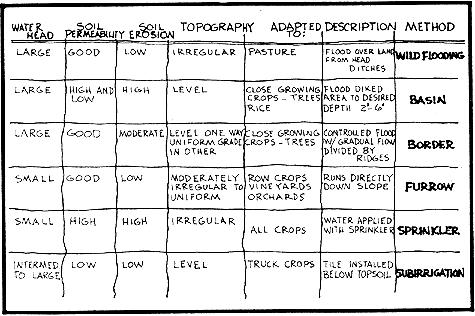 WATER HEAD SOIL PERMEABILITY SOIL EROSION TOPOGRAPHY ADAPTED TO: DESCRIPTION METHOD
LARGE GOOD LOW IRREGULAR PASTURE FLOOD OVER LAND FROM HEAD DITCHES WILD FLOODING
LARGE HIGH AND LOW HIGH LEVEL CLOSE GROWING CROPS - TREES RICE FLOOD DIKED AREA TO DESIRED DEPTH 2"-6" BASIN
LARGE GOOD MODERATE LEVEL ONE WAY UNIFORM GRADE IN OTHER CLOSE GROWING CROPS - TREES CONTROLLED FLOOD W/ GRADUAL FLOW DIVIDED BY RIDGES BORDER
SMALL GOOD LOW MODERATELY IRREGULAR TO UNIFORM ROW CROPS VINEYARDS ORCHARDS RUNS DIRECTLY DOWN SLOPE FURROW
SMALL HIGH HIGH IRREGULAR ALL CROPS WATER APPLIED WITH SPRINKLER SPRINKLER
INTERMED TO LARGE LOW LOW LEVEL TRUCK CROPS TILE INSTALLED BELOW TOPSOIL SUBIRRIGATION